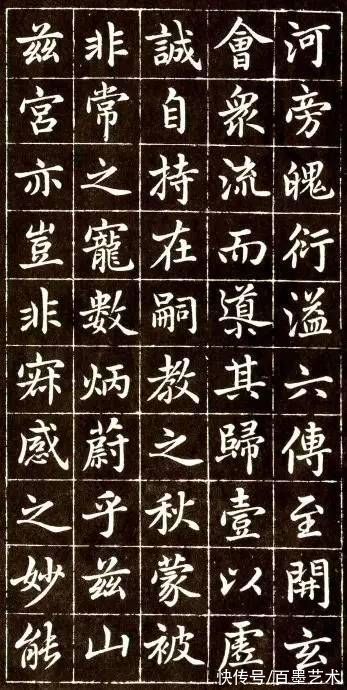 河旁魄衍溢六傳至開玄
會衆流而導其歸壹以虔
誠自持在嗣教之秋蒙被
非常之寵數炳蔚乎茲山
茲宮亦豈非寂感之妙能
快传号/百墨艺术